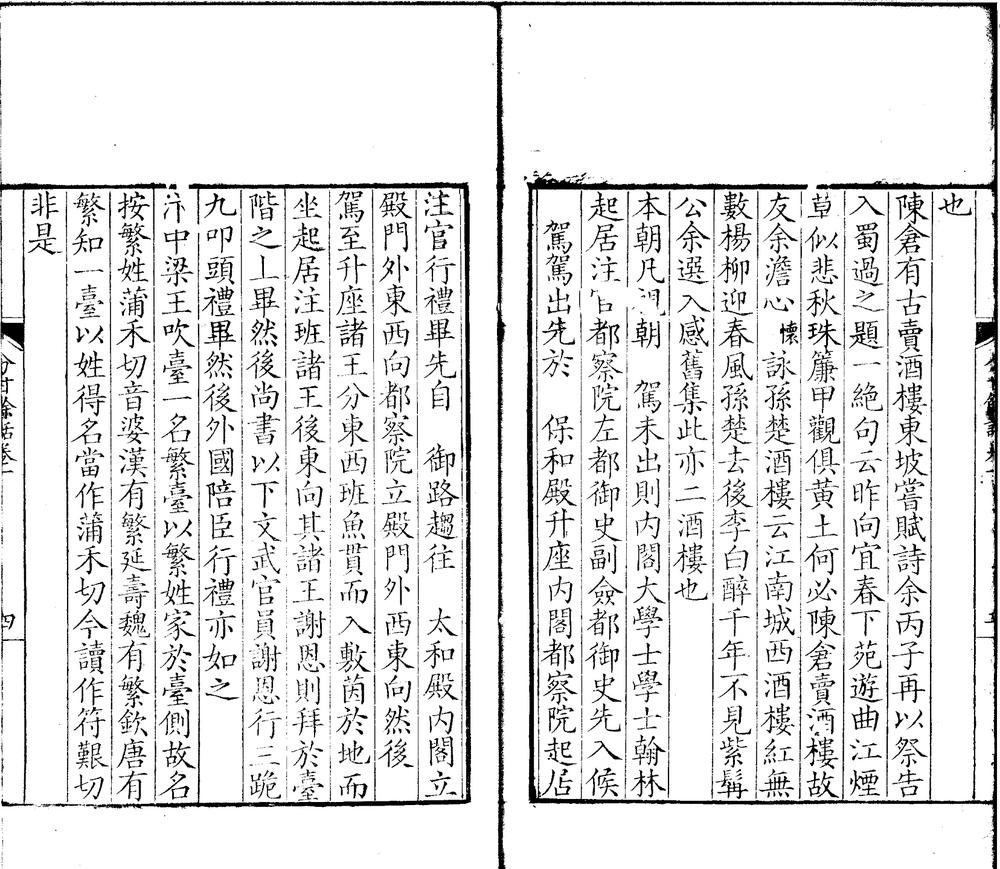 也
陳倉有古賣酒樓東坡嘗賦詩余丙子再以祭告
入蜀過之題一絶句云昨向宜春下苑遊曲江煙
草似悲秋珠簾甲觀俱黃土何必陳倉賣酒樓故
友余澹心懷詠孫楚酒樓云江南城西酒樓紅無
數楊柳迎春風孫楚去後李白醉千年不見紫髯
公余選入感舊集此亦二酒樓也
本朝凡視朝 駕未出則内閣大學士學士翰林
起居注官都察院左都御史副僉都御史先入候
駕駕出先於 保和殿升座内閣都察院起居
注官行禮畢先自 御路趨往 太和殿内閣立
殿門外東西向都察院立殿門外西東向然後
駕至升座諸王分東西班魚貫而入敷茵於地而
坐起居注班諸王後東向其諸王謝恩則拜於臺
階之上畢然後尚書以下文武官員謝恩行三跪
九叩頭禮畢然後外國陪臣行禮亦如之
汴中梁王吹臺一名繁臺以繁姓家於臺側故名
按繁姓蒲禾切音婆漢有繁延壽魏有繁欽唐有
繁知一臺以姓得名當作蒲禾切今讀作符艱切
非是
分甘餘話卷一
四